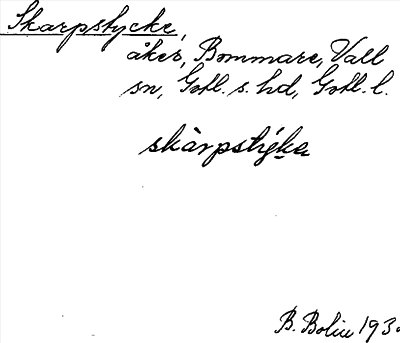 Skarpstycke,
åker, Bommare, Vall
sn, Gotl. s. hd, Gotl. l.
skàrpstýka
B. Bolin